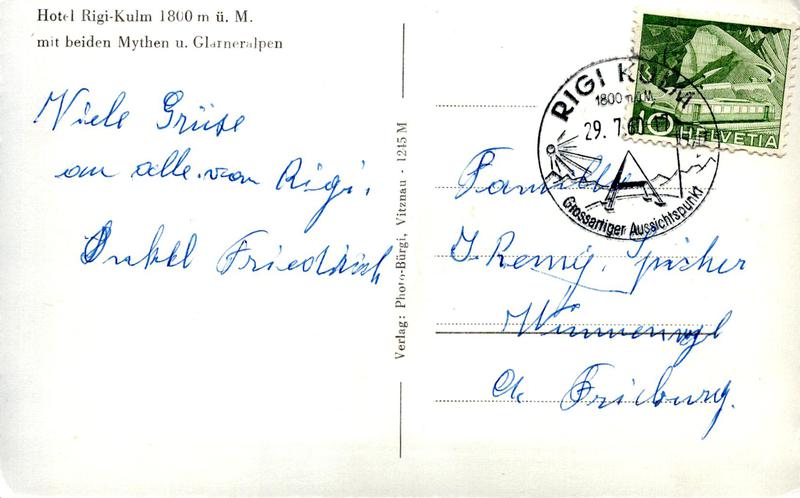 Hotel Rigi-Kulm 1800 m ü. M.
mit beiden Mythen u. Glarneralpen
Viele Grüse
an alle von Rigi.
Onkel Friedrich
Verlag: Photo-Bürgi, Vitznau - 1245 M
RIGI KULM
1800 m ü. M.
29. 7. 60
Grossartiger Aussichtspunkt
10 HELVETIA
Familie
J. Remy
Ct. Friburg.